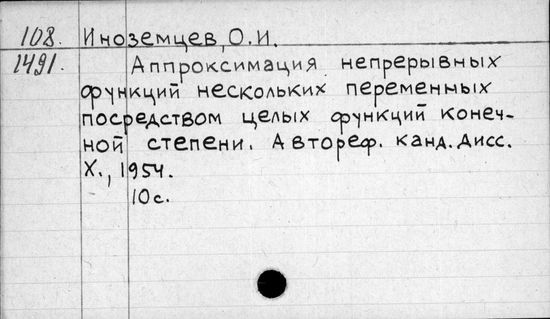 108. Иноземцев, О.И.
1491. Аппроксимация непрерывных
функций нескольких переменных
посредством целых функций конеч-
ной степени. Автореф. канд. дисс.
Х., 1954.
10с.